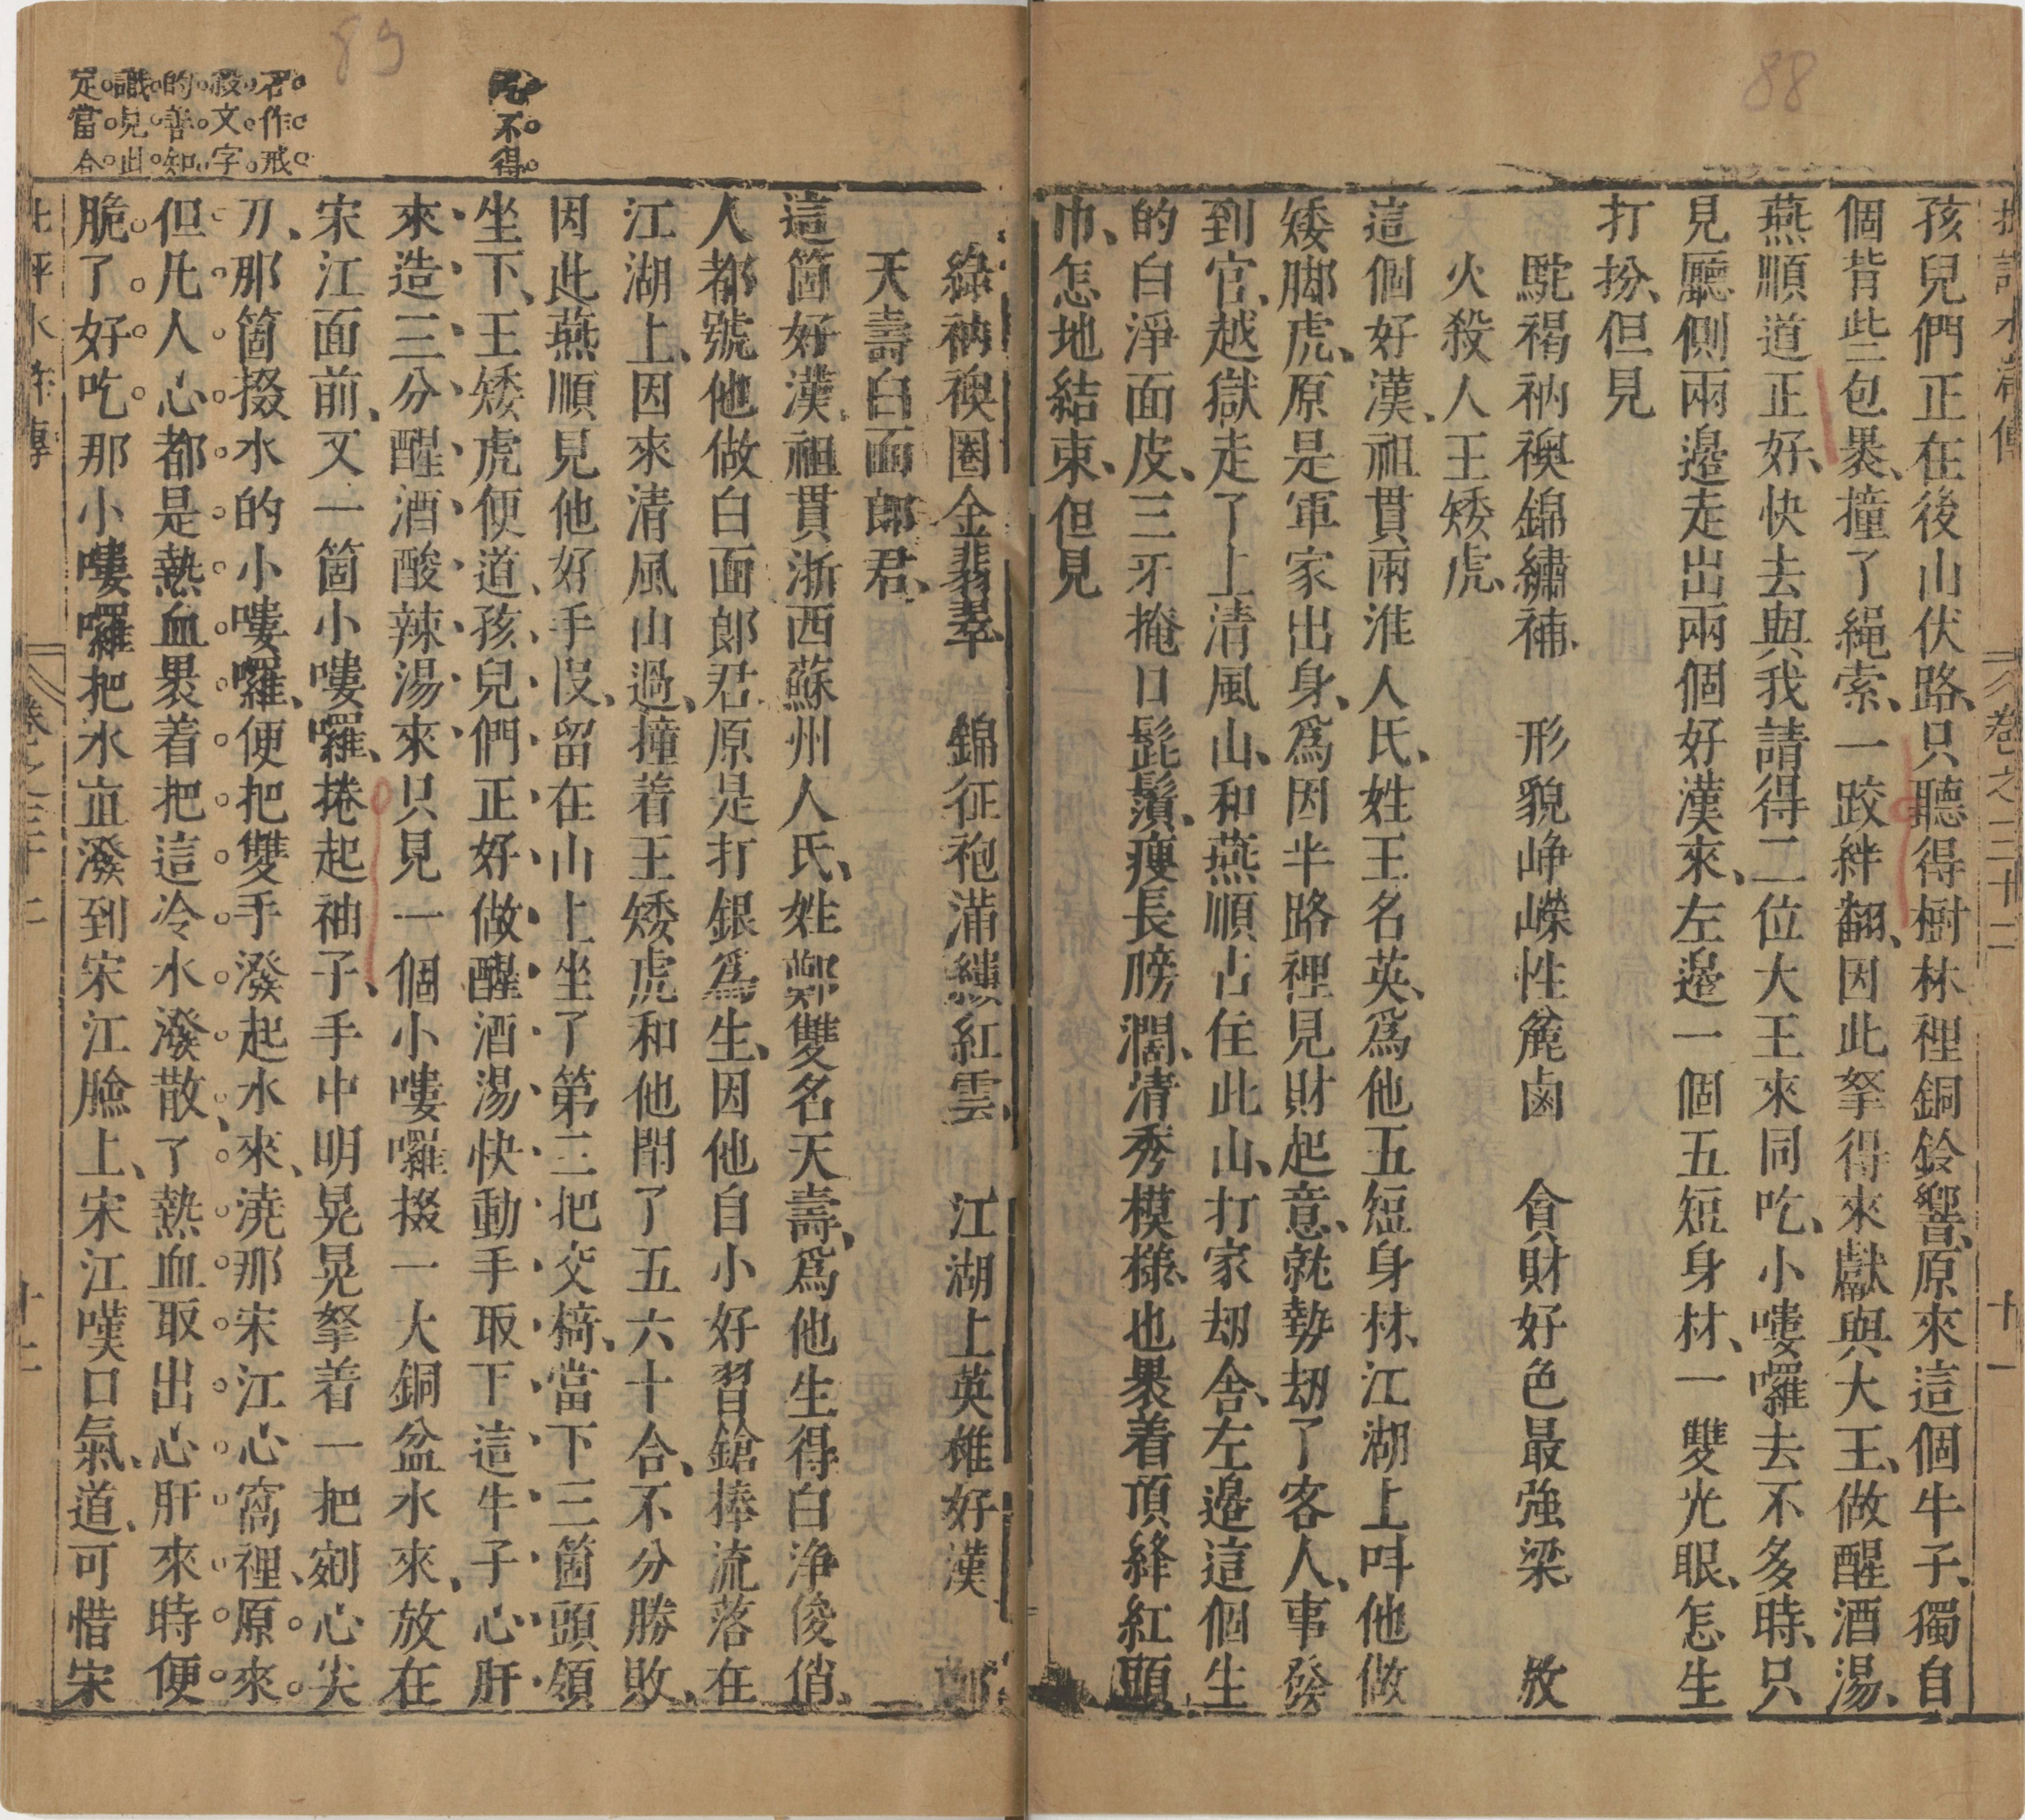 88
卷之三十二
十一
孩兒們正在後山伏路、只聽得樹林裡銅鈴響、原來這個牛子、獨自
個背些包裹、撞了繩索、一跤絆翻、因此拏得來獻與大王、做醒酒湯、
燕順道正好、快去與我請得二位大王來同吃、小嘍囉去不多時、只
見廳側兩邉走出兩個好漢來、左邉一個五短身材、一雙光眼、怎生
打扮、但見
駝褐衲襖錦繡補、形貌崢嶸性麄鹵　貪財好色最強梁　放
火殺人王矮虎、
這個好漢、祖貫兩淮人氏、姓王名英、爲他五短身材、江湖上呌他做
矮脚虎、原是軍家出身、爲因半路裡見財起意、就勢刼了客人、事發
到官、越獄走了上清風山、和燕順占住此山、打家刼舍、左邉這個生
的白淨面皮、三牙掩口髭鬚、瘦長膀濶、清秀模樣、也裹着頂絳紅頭
巾、怎地結束、但見
89
綠衲襖圈金翡翠、錦征袍滿縷紅雲、江湖上英雄好漢　鄭
天壽白面郎君、
這箇好漢、祖貫浙西蘇州人氏、姓鄭雙名天壽、爲他生得白浄俊俏、
人都號他做白面郎君、原是打銀爲生、因他自小好習鎗棒流落在
江湖上、因來清風山過、撞着王矮虎和他閗了五六十合、不分勝敗、
因此燕順見他好手段、留在山上坐了第三把交椅、當下三箇頭領
坐下、王矮虎便道、孩兒們正好做醒酒湯快動手取下這牛子心肝
來造三分醒酒酸辣湯來只見一個小嘍囉掇一大銅盆水來、放在
宋江面前、又一箇小嘍囉、捲起袖子、手中明晃晃拏着一把剜心尖
刀、那箇掇水的小嘍囉、便把雙手潑起水來、澆那宋江心窩裡、原來
但凡人心都是熱血裹着把這冷水潑散、了熱血取出心肝來時便
脆了好吃那小嘍囉把水直潑到宋江臉上、宋江嘆口氣、道、可惜宋
不得
名作戒
殺文字
的善知
識見此
定當合
卷之三十二
十二